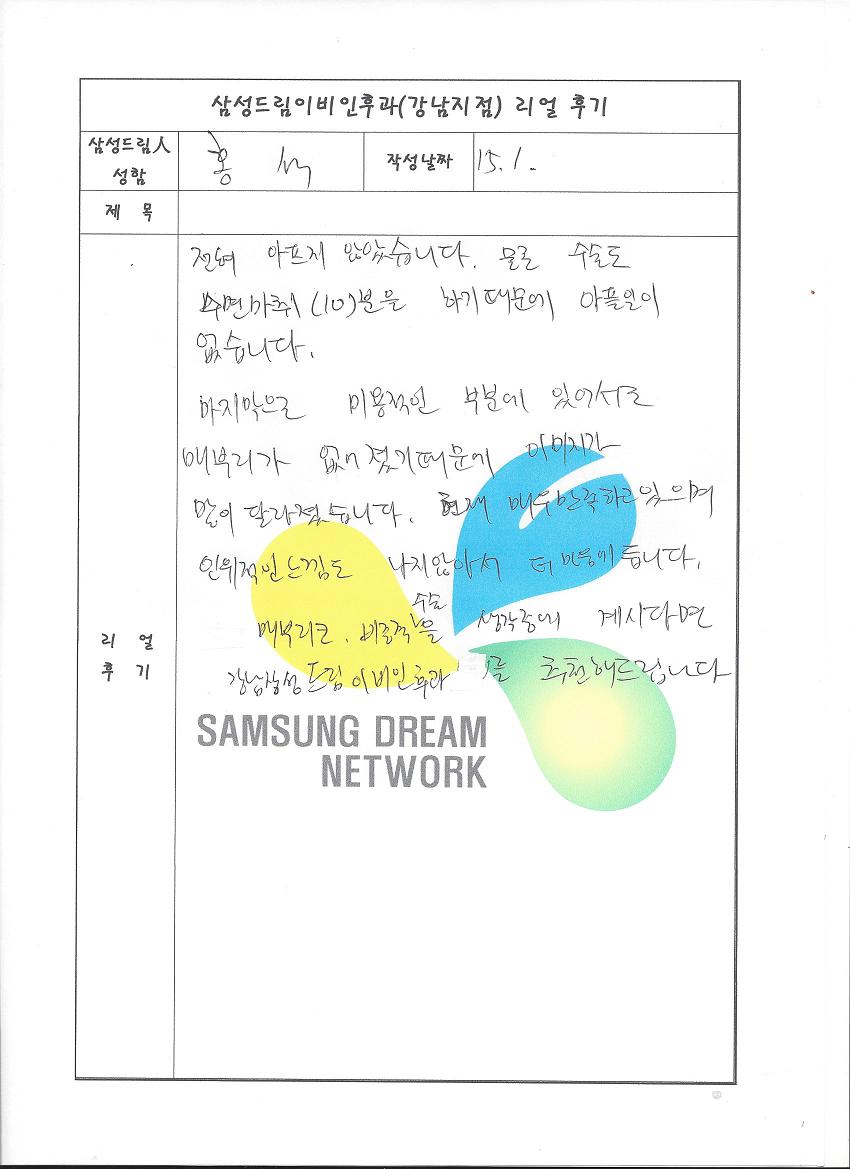 삼성드림이비인후과(강남지점) 리얼 후기
삼성드림人
성함
홍
작성날짜
15.1.
제 목
전혀 아프지 않았습니다. 물론 수술도
수면마취(10)분을 하기때문에 아플일이
없습니다.
마지막으로 미용적인 부분에 있어서도
매부리가 없어졌기때문에 이미지가
많이 달라졌습니다. 현재 매우만족하고있으며
인위적인느낌도 나지않아서 더 마음에 듭니다.
수술
매부리코, 비중격을 생각중에 계시다면
강남삼성드림이비인후과 를 추천해드립니다
리 얼
후 기
SAMSUNG DREAM
NETWORK